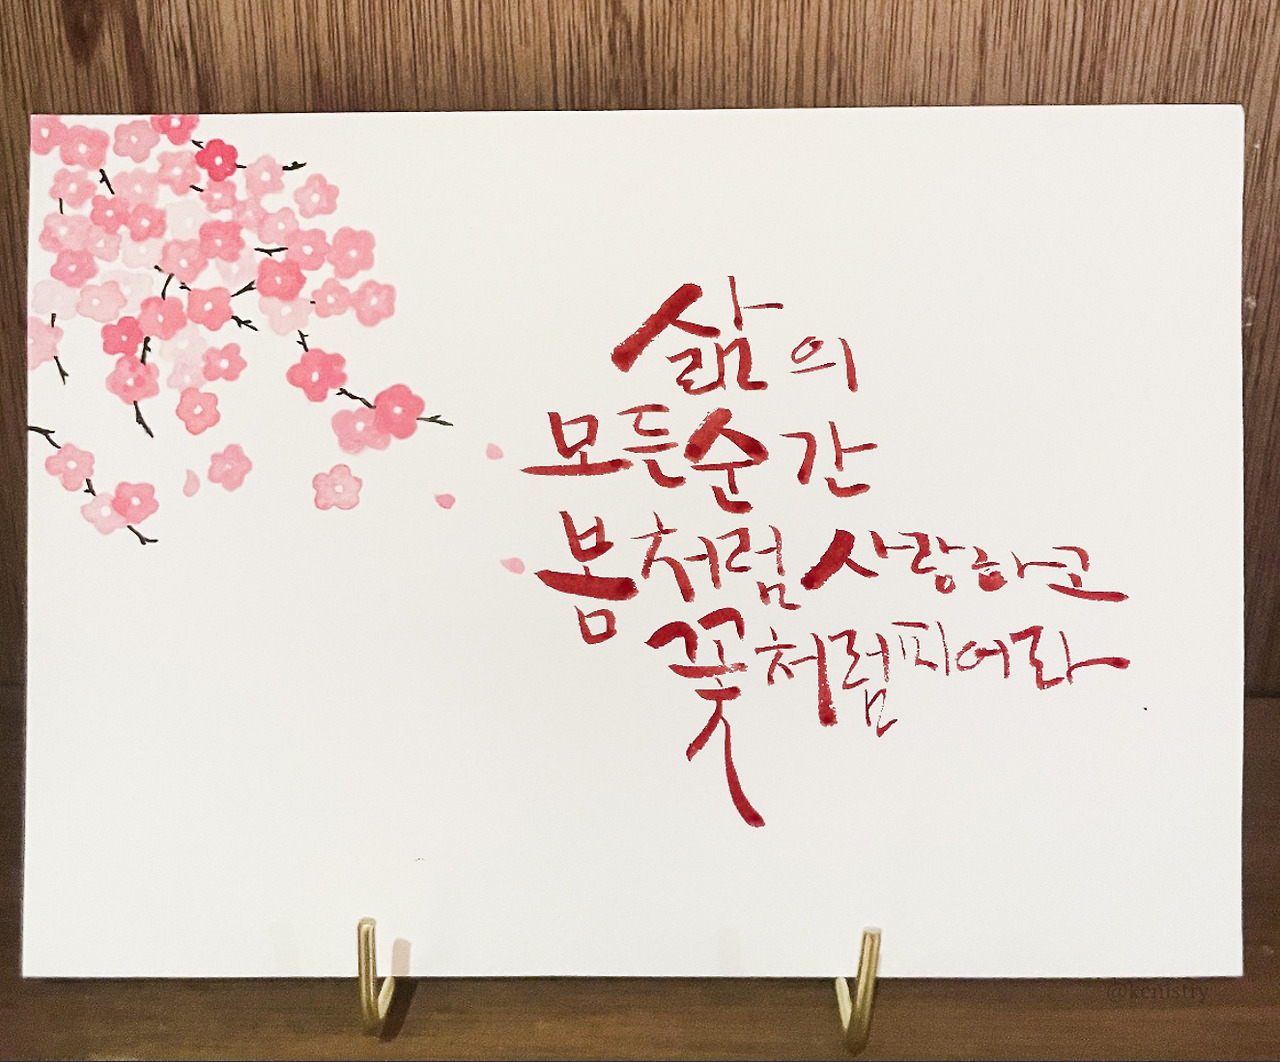 삶의
모든 순간
봄처럼 사랑하고
꽃처럼 피어라
@kenistry